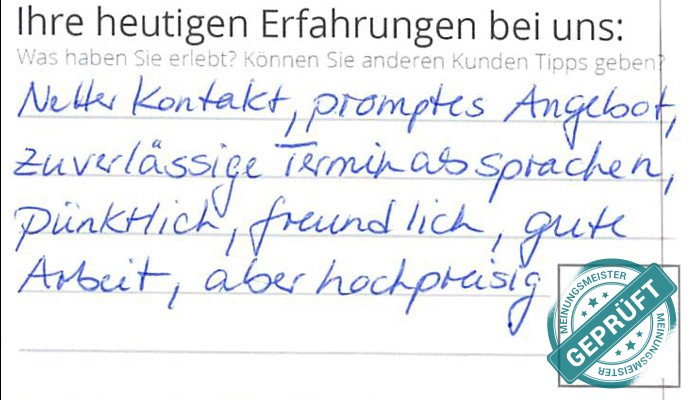 Ihre heutigen Erfahrungen bei uns:
Was haben Sie erlebt? Können Sie anderen Kunden Tipps geben?
Netter Kontakt, promptes Angebot,
zuverlässige Terminabsprachen,
pünktlich, freundlich, gute
Arbeit, aber hochpreisig
MEINUNGSMEISTER
GEPRÜFT
MEINUNGSMEISTER
MEINUNGSMEISTER